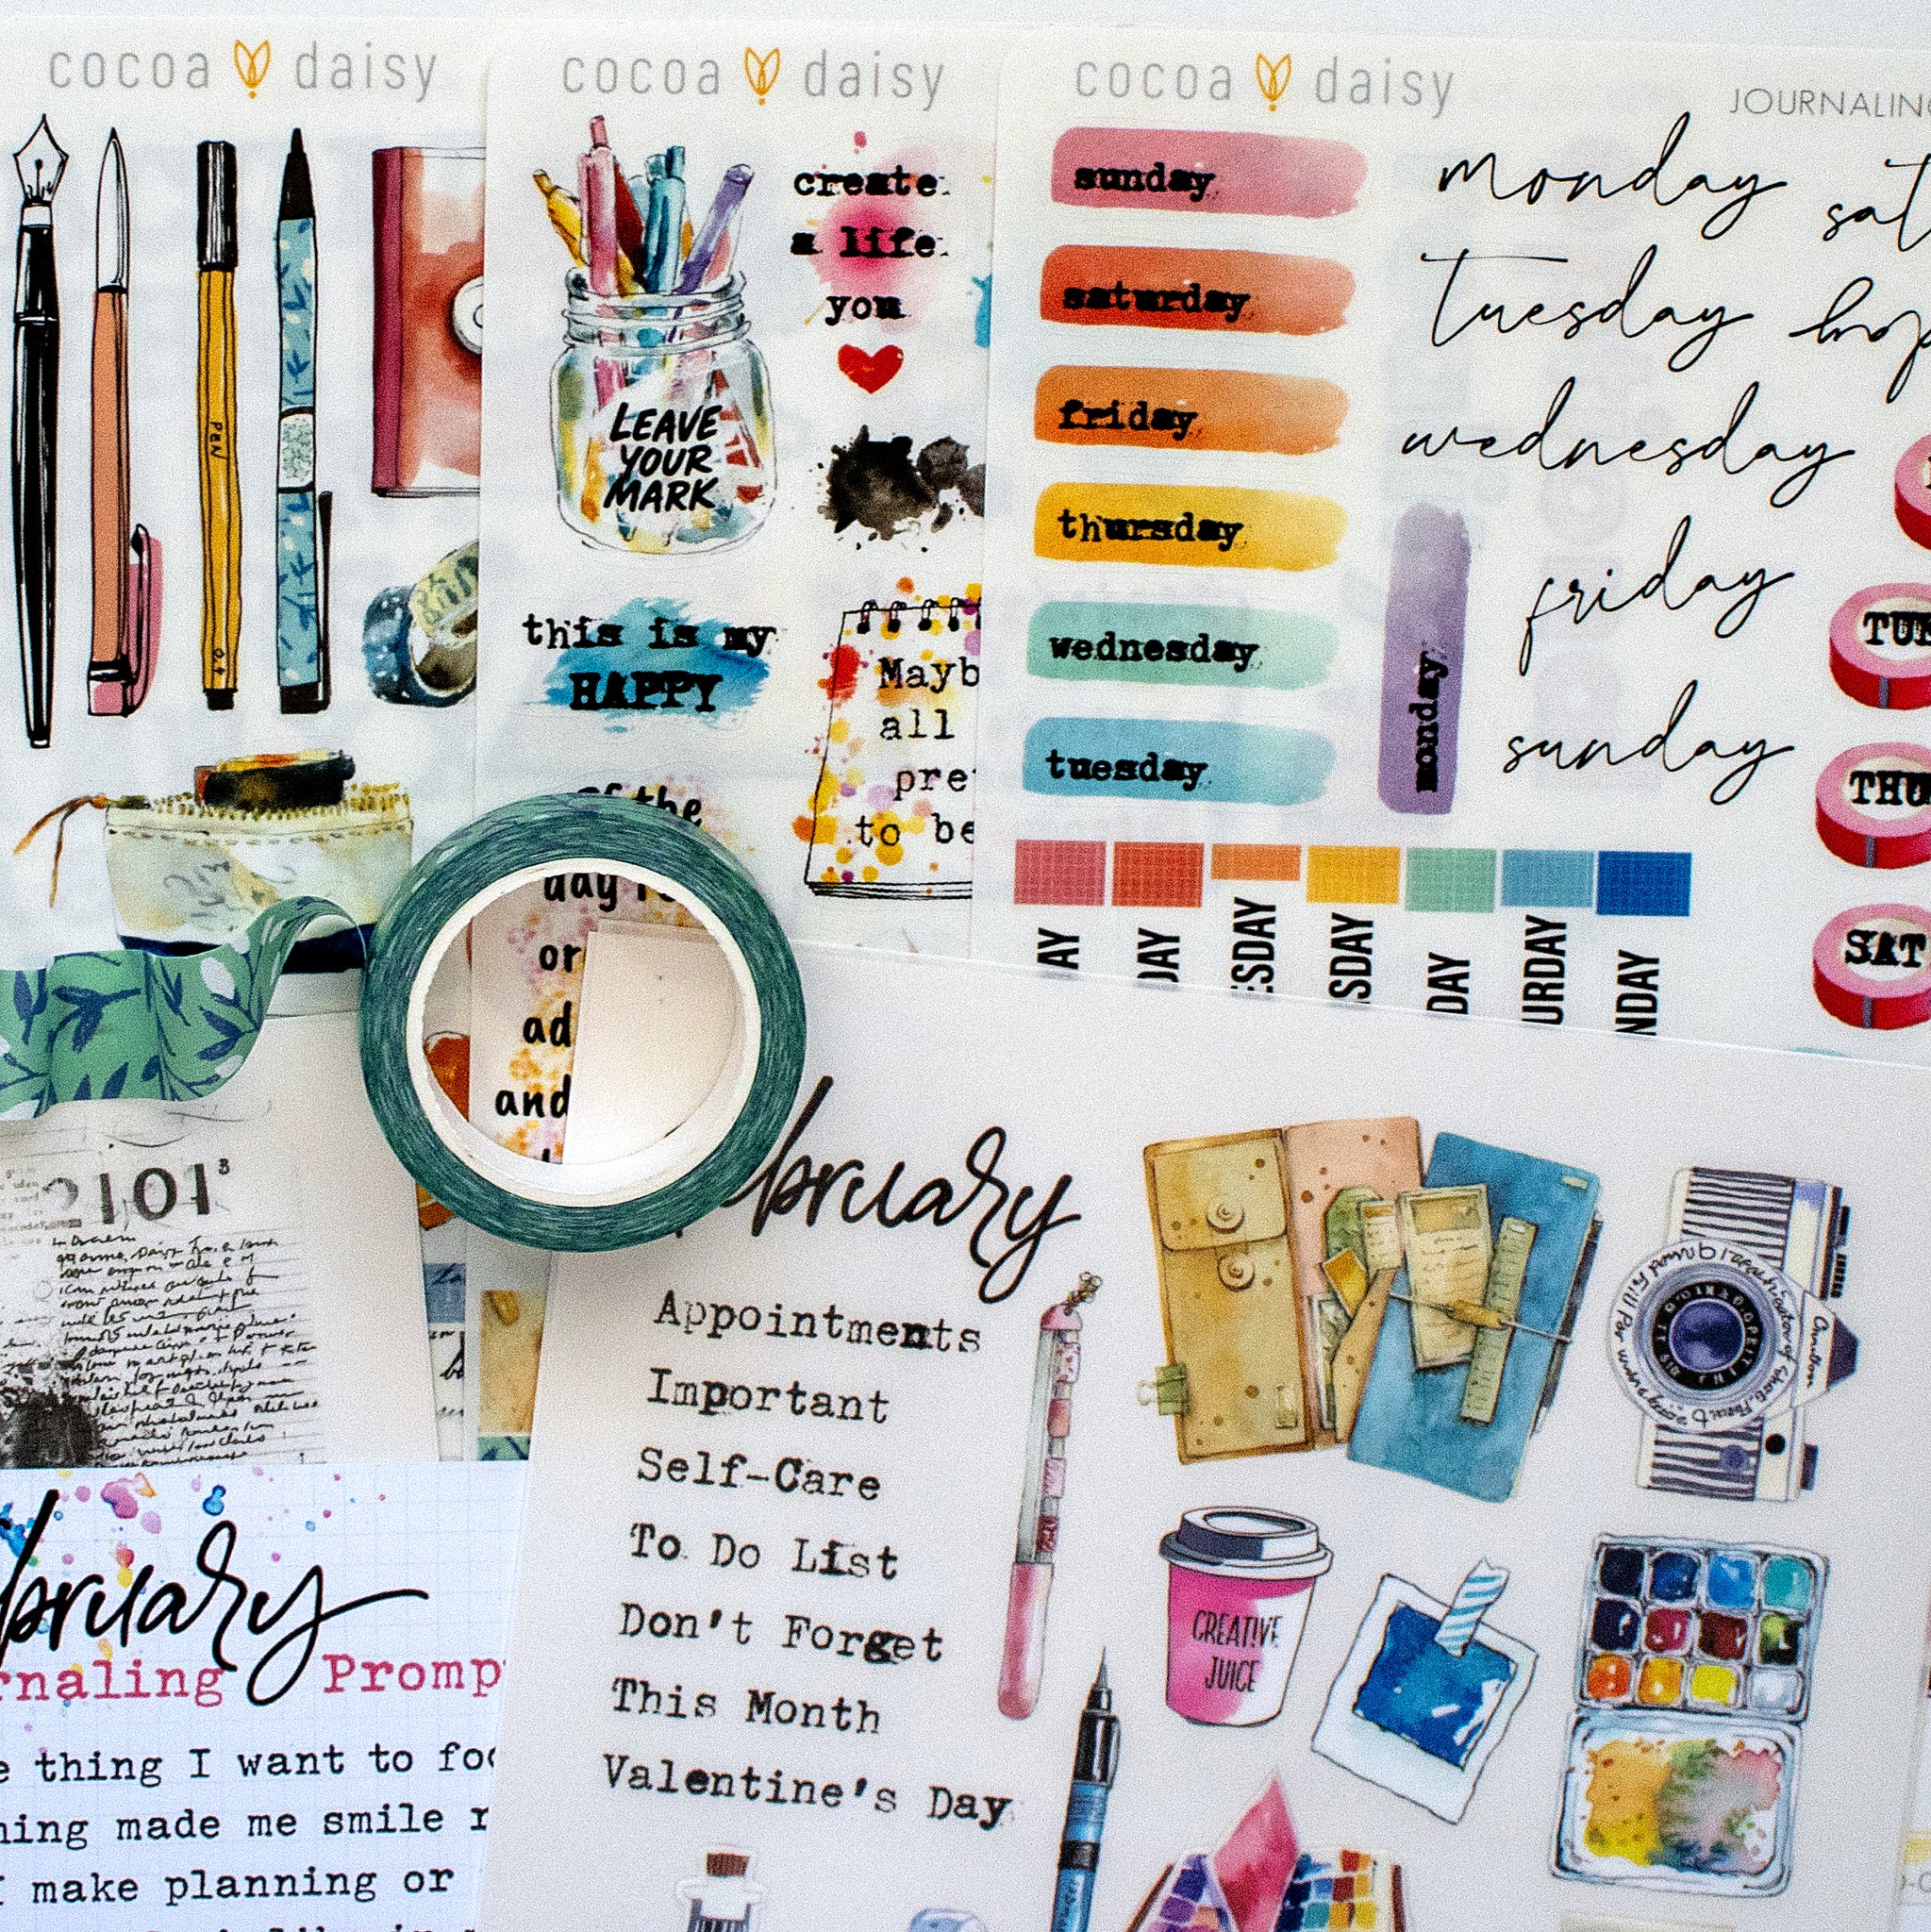 cocoa daisy
cocoa daisy
cocoa daisy
JOURNALING
PEN
create
a life
you
LEAVE
YOUR
MARK
this is my
HAPPY
Mayb
all
pre
to be
of the
day
or
ad
and
sunday
saturday
friday
thursday
wednesday
tuesday
monday
monday
sat
tuesday
hop
wednesday
friday
sunday
TUE
THU
SAT
AY
DAY
ESDAY
SDAY
DAY
URDAY
NDAY
101
bruary
Appointments
Important
Self-Care
To Do List
Don't Forget
This Month
Valentine's Day
CREATIVE
JUICE
bruary
rnaling Promp
e thing I want to foc
hing made me smile r
I make planning or